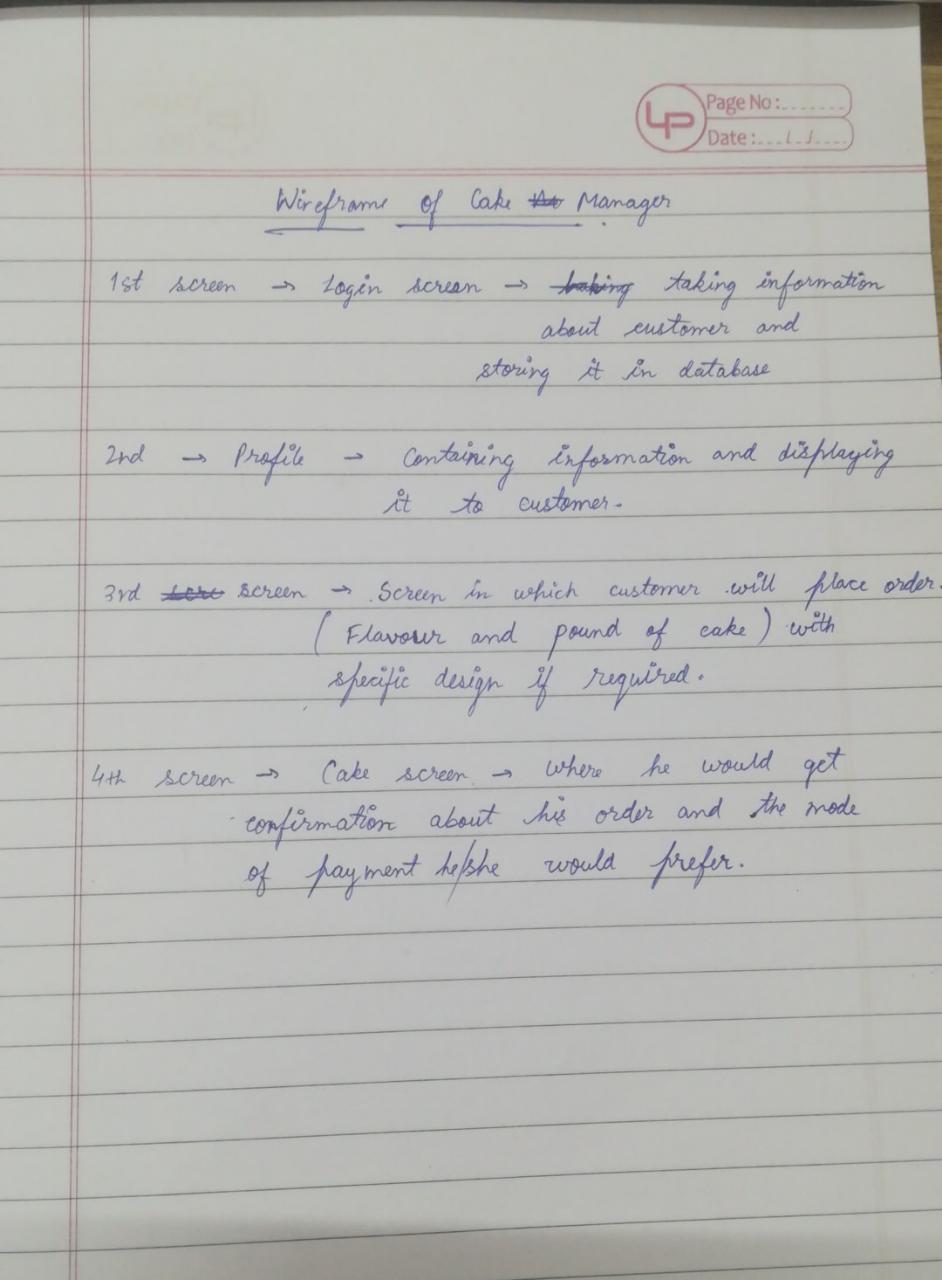 LP
Page No :.......
Date :..../../.....
Wireframe of Cake Manager
1st screen → Login screen → taking information
about customer and
storing it in database
2nd → Profile → Containing information and displaying
it to customer.
3rd screen → Screen in which customer will place order.
(Flavour and pound of cake) with
specific design if required.
4th screen → Cake screen → Where he would get
confirmation about his order and the mode
of payment he/she would prefer.